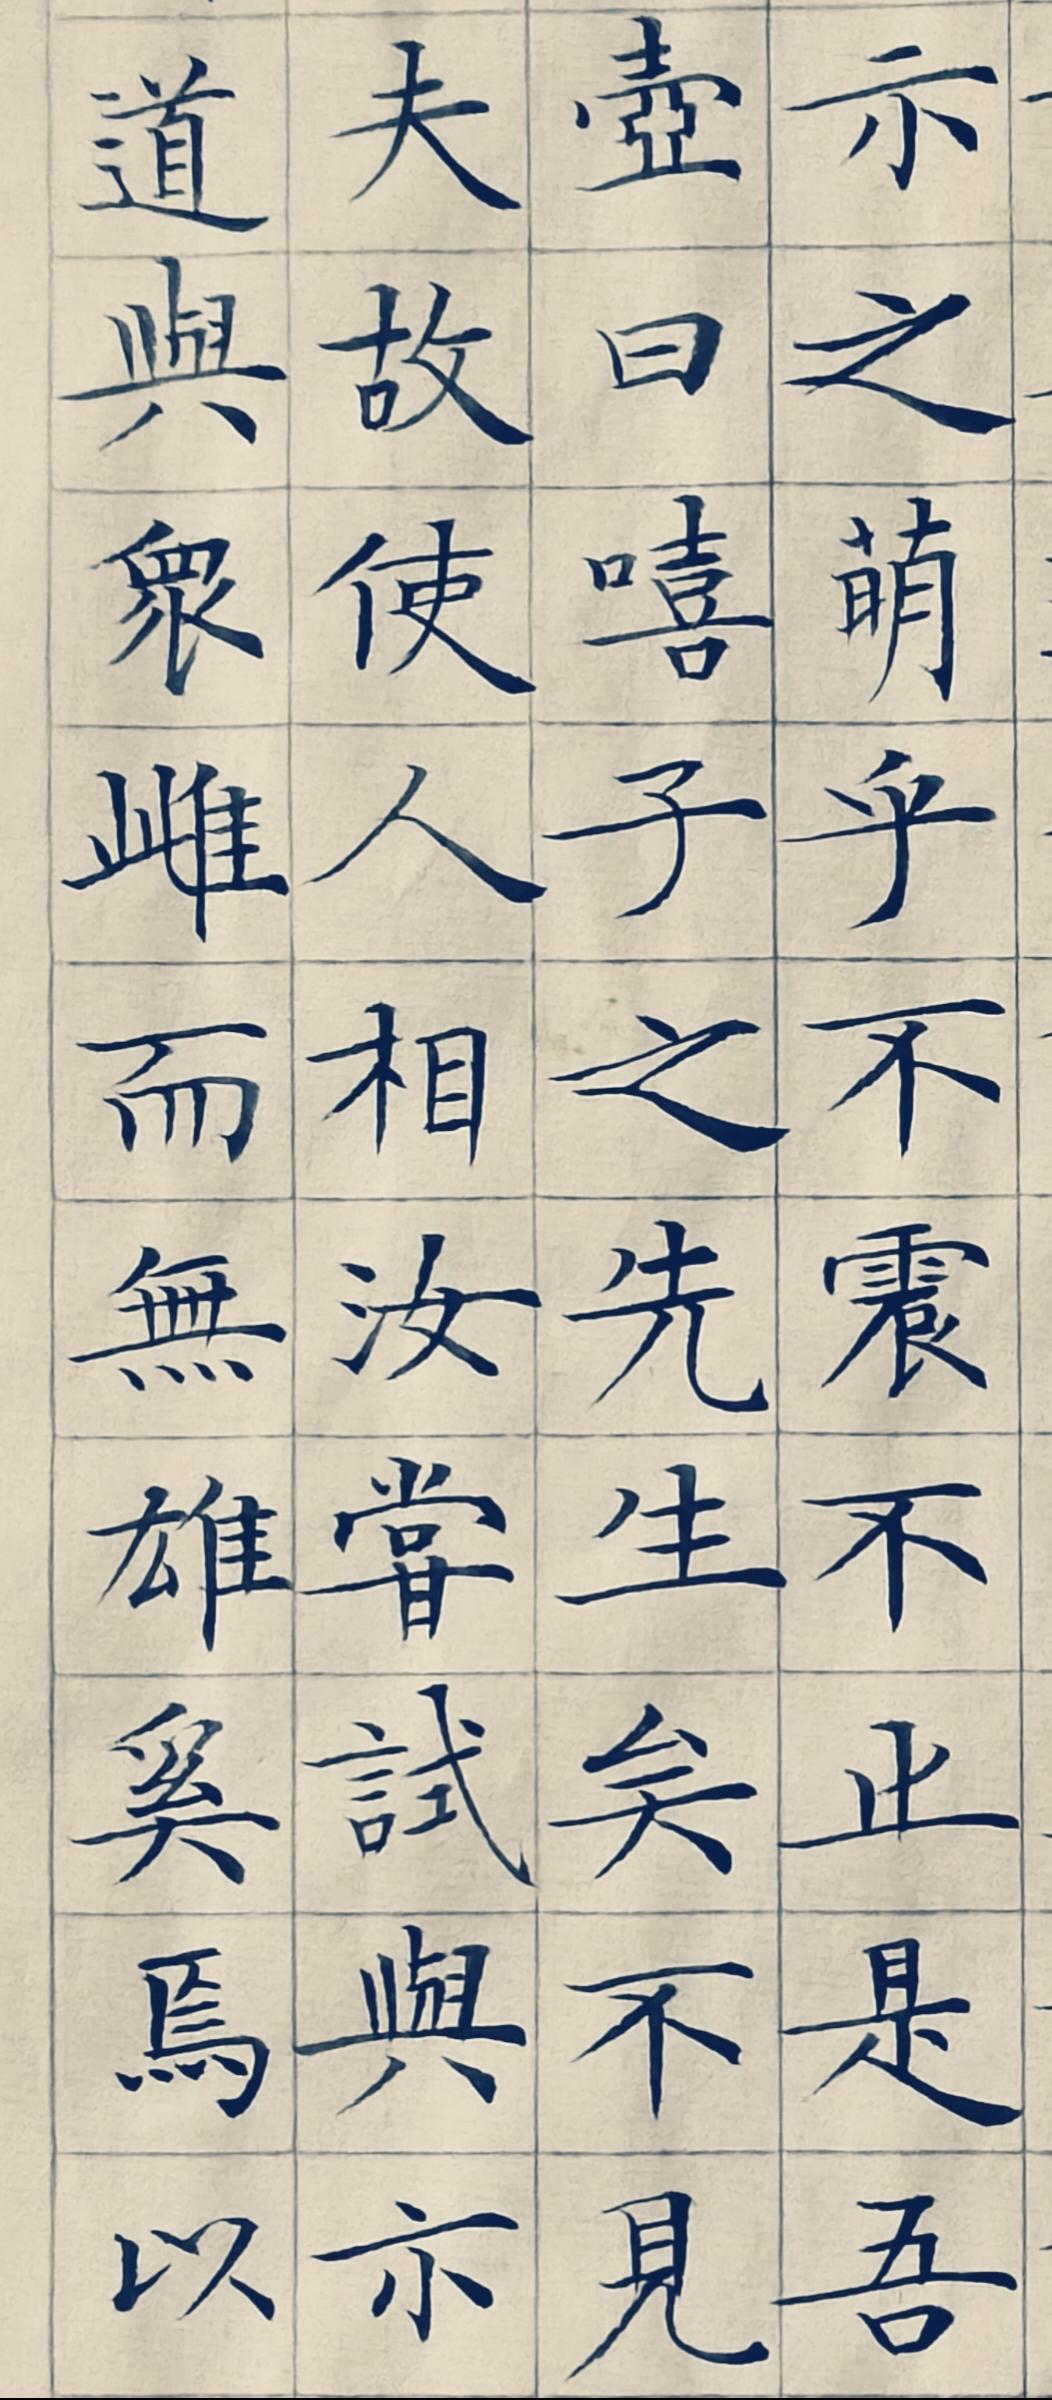 示之萌乎不震不止是吾
壺曰嘻子之先生矣不見
夫故使人相汝嘗試與示
道與衆雌而無雄奚焉以